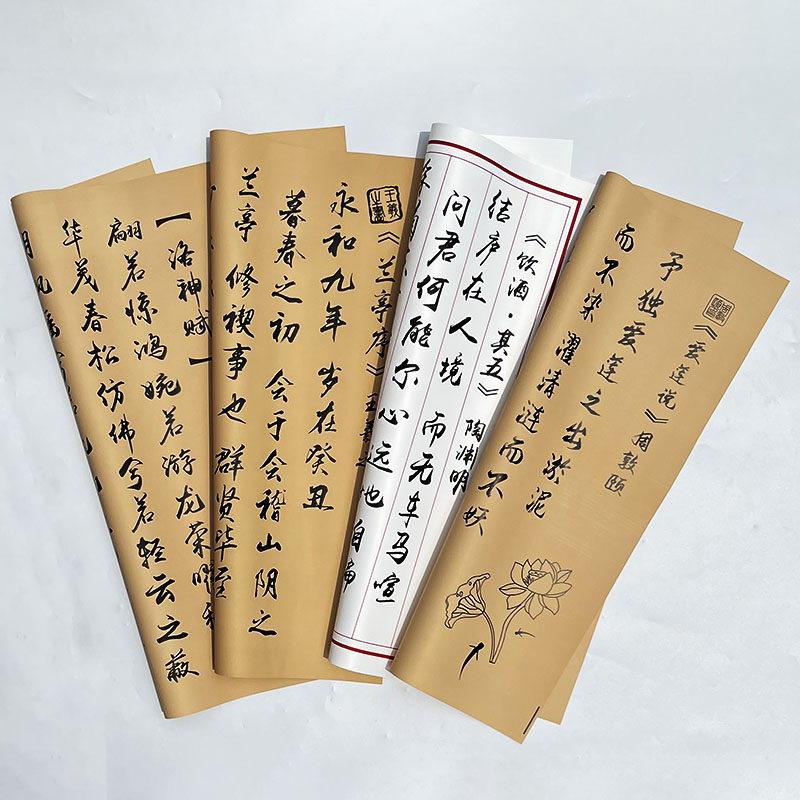 【洛神赋】
翩若惊鸿 婉若游龙 荣曜
华茂春松 仿佛兮若轻云之蔽
《兰亭序》王羲之
永和九年 岁在癸丑
暮春之初 会于会稽山阴之
兰亭 修禊事也 群贤毕至
《饮酒·其五》 陶渊明
结庐在人境 而无车马喧
问君何能尔 心远地自偏
《爱莲说》 周敦颐
予独爱莲之出淤泥
而不染 濯清涟而不妖